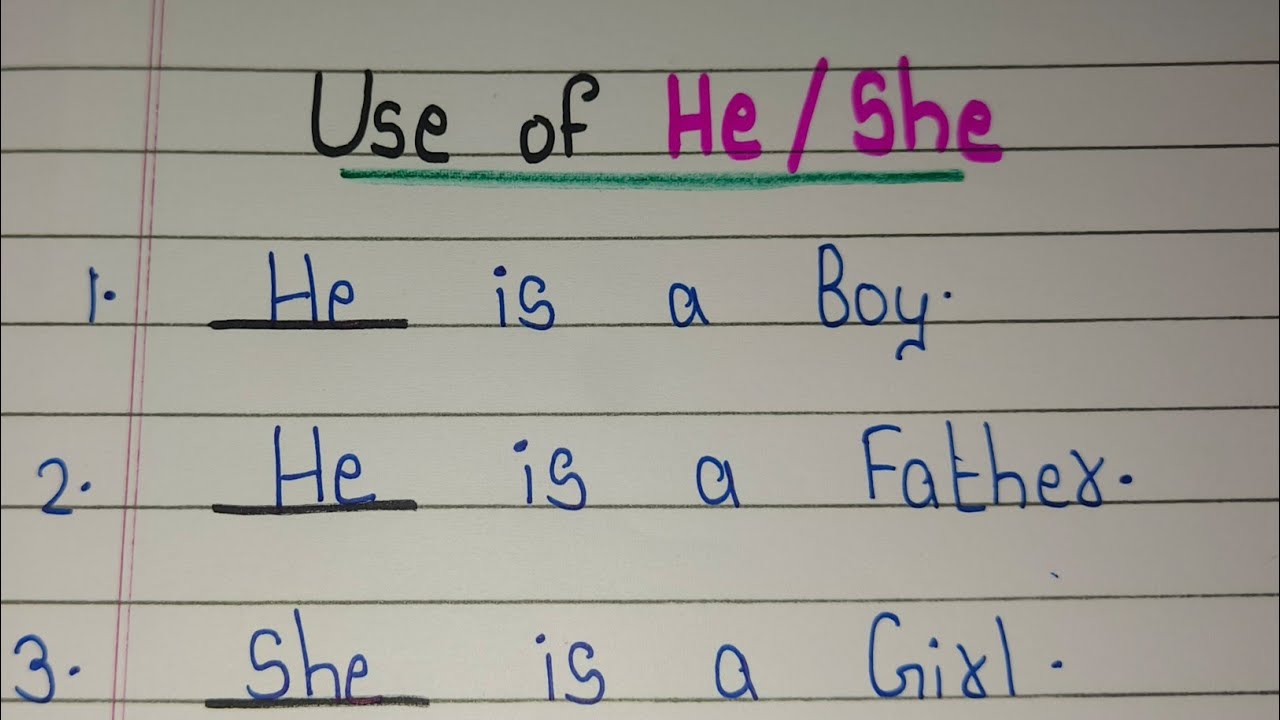 Use of He/She
1. He is a Boy.
2. He is a Father.
3. She is a Girl.